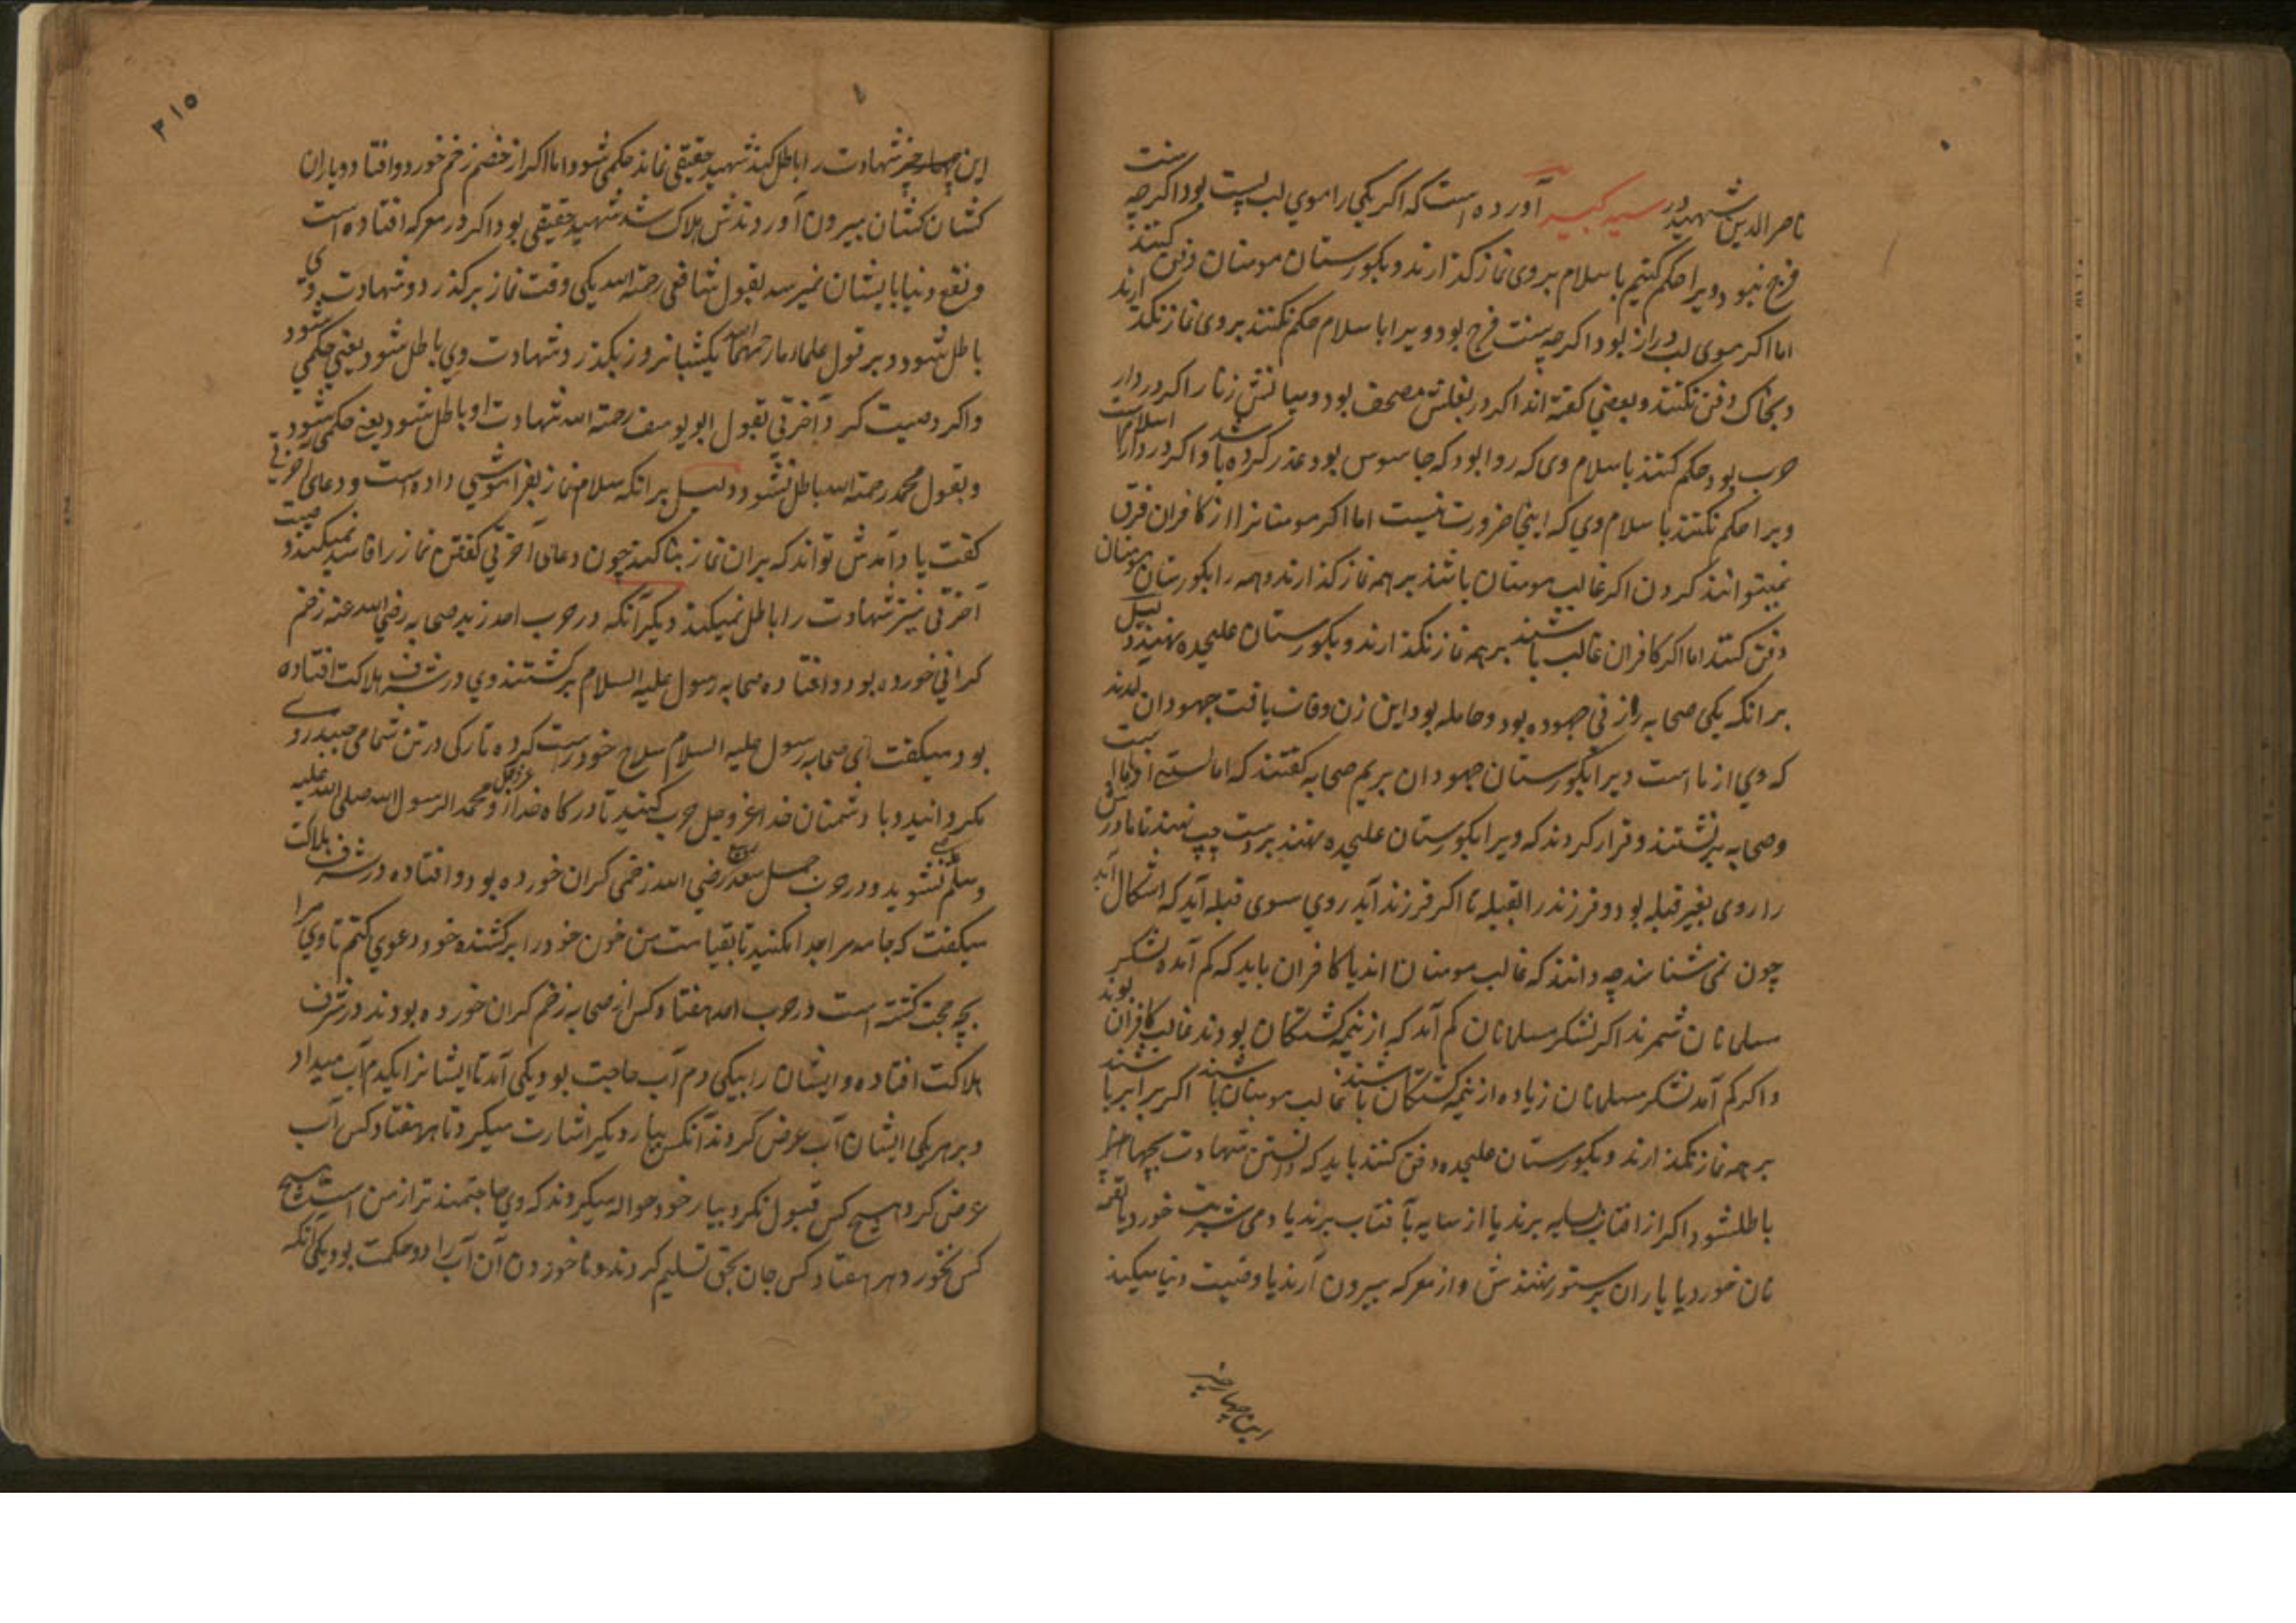 ناصر الدین شهید در سیر کبیر آورده است که اگر یکی را موی لب پست بود اگر چه سنت
فرج نبود ویرا حکم کنیم باسلام بر وی نماز گذارند و بگورستان مومنان دفن کنند
اما اگر موی لب دراز بود اگر چه سنت فرج بود ویرا باسلام حکم نکنند بر وی نماز نگذارند
و بخاک دفن نکنند و بعضی گفته اند اگر در بغلش مصحف بود و میانش زنار اگر در دار
حرب بود حکم کنند باسلام وی که روا بود که جاسوس بود عذر کرده باشد و اگر در دار اسلام است
ویرا حکم نکنند باسلام وی که اینجا ضرورت نیست اما اگر مومنانرا از کافران فرق
نمیتوانند کردن اگر غالب مومنان باشند بر همه نماز گذارند و همه را بگورستان مومنان
دفن کنند اما اگر کافران غالب باشند بر همه نماز نگذارند و بگورستان علیحده نهند دلیل
بر انکه یکی صحابه را زنی جهوده بود و حامله بود این زن وفات یافت جهودان آمدند
که وی از ما است ویرا بگورستان جهودان بریم صحابه گفتند که
و صحابه بنشستند و قرار کردند که ویرا بگورستان علیحده نهند بر دست چپ نهند تا مادرش
را روی بغیر قبله بود و فرزند را بقبله تا اگر فرزند آید روی سوی قبله آید که اشکال آید
چون نمی شناسند چه دانند که غالب مومنان اند یا کافران باید که کم آمده لشکر
مسلمانان شمرند اگر لشکر مسلمانان کم آمد که از نیمه کشتگان بودند غالب کافران بوند
و اگر کم آمد لشکر مسلمانان زیاده از نیمه کشتگان باشند غالب مومنان باشند اگر برابر باشند
بر همه نماز نگذارند و بگورستان علیحده دفن کنند باید که دانستن شهادت بچهار چیز
باطلشود اگر از افتاب بسایه برند یا از سایه بآفتاب برند یا دمی شربت خورد یا لقمه
نان خورد یا یاران بر ستور نهندش و از معرکه بیرون آرند یا وصیت دنیا میکند
این چهار چیز
۳۱۵
این چهار چیز شهادت را باطل کند شهید حقیقی نماند حکمی شود و اما اگر از خصم زخم خورد و افتاد و یاران
کشان کشان بیرون آوردندش هلاک شد شهید حقیقی بود اگر در معرکه افتاده است
و نفع دنیا بایشان نمیرسد بقول شافعی رحمه الله یکی وقت نماز بر گذرد و شهادت وی
باطل شود و بر قول علماء ما رحمهما الله یکشبانروز بگذرد شهادت وی باطل شود یعنی حکمی شود
و اگر وصیت کرد آخرتی بقول ابو یوسف رحمه الله شهادت او باطل شود یعنی حکمی شود
و بقول محمد رحمه الله باطل نشود دلیل بر انکه سلام نماز بفراموشی داده است و دعای آخرتی
گفت یاد آمدش تواند که بران نماز بنا کند چون دعای آخرتی گفتن نماز را فاسد نمیکند وصیت
آخرتی نیز شهادت را باطل نمیکند دیگر آنکه در حرب احد زید صحابه رضی الله عنه زخم
گرانی خورده بود و افتاده صحابه رسول علیه السلام برگشتند وی در شرف هلاکت افتاده
بود میگفت ای صحابه رسول علیه السلام سلاح خود راست کرده تا رگی در تن شما می جنبد روی
مگردانید و با دشمنان خدا عز و جل حرب کنید تا در گاه خدا عز و جل و محمد الرسول الله صلی الله علیه
وسلم نشوید و در حرب جمل سعد ربیع رضی الله زخمی گران خورده بود و افتاده در شرف هلاکت
میگفت که جامه مرا جدا مکنید تا بقیامت من خون خود را بر کشنده خود دعوی کنم تا وی مرا
بچه حجت کشته است در حرب احد هفتاد کس از صحابه زخم گران خورده بودند در شرف
هلاکت افتاده و ایشان را بیکی دم آب حاجت بود یکی آمد تا ایشانرا یکدم آب میداد
و بر هر یکی ایشان آب عرض کردند آنکس بیار دیگر اشارت میکرد تا هر هفتاد کس آب
عرض کرد هیچ کس قبول نکرد بیار خود حواله میکردند که وی حاجتمند تر از من است هیچ
کس نخورد هر هفتاد کس جان بحق تسلیم کردند و نا خوردن آن آب را دو حکمت بود یکی آنکه